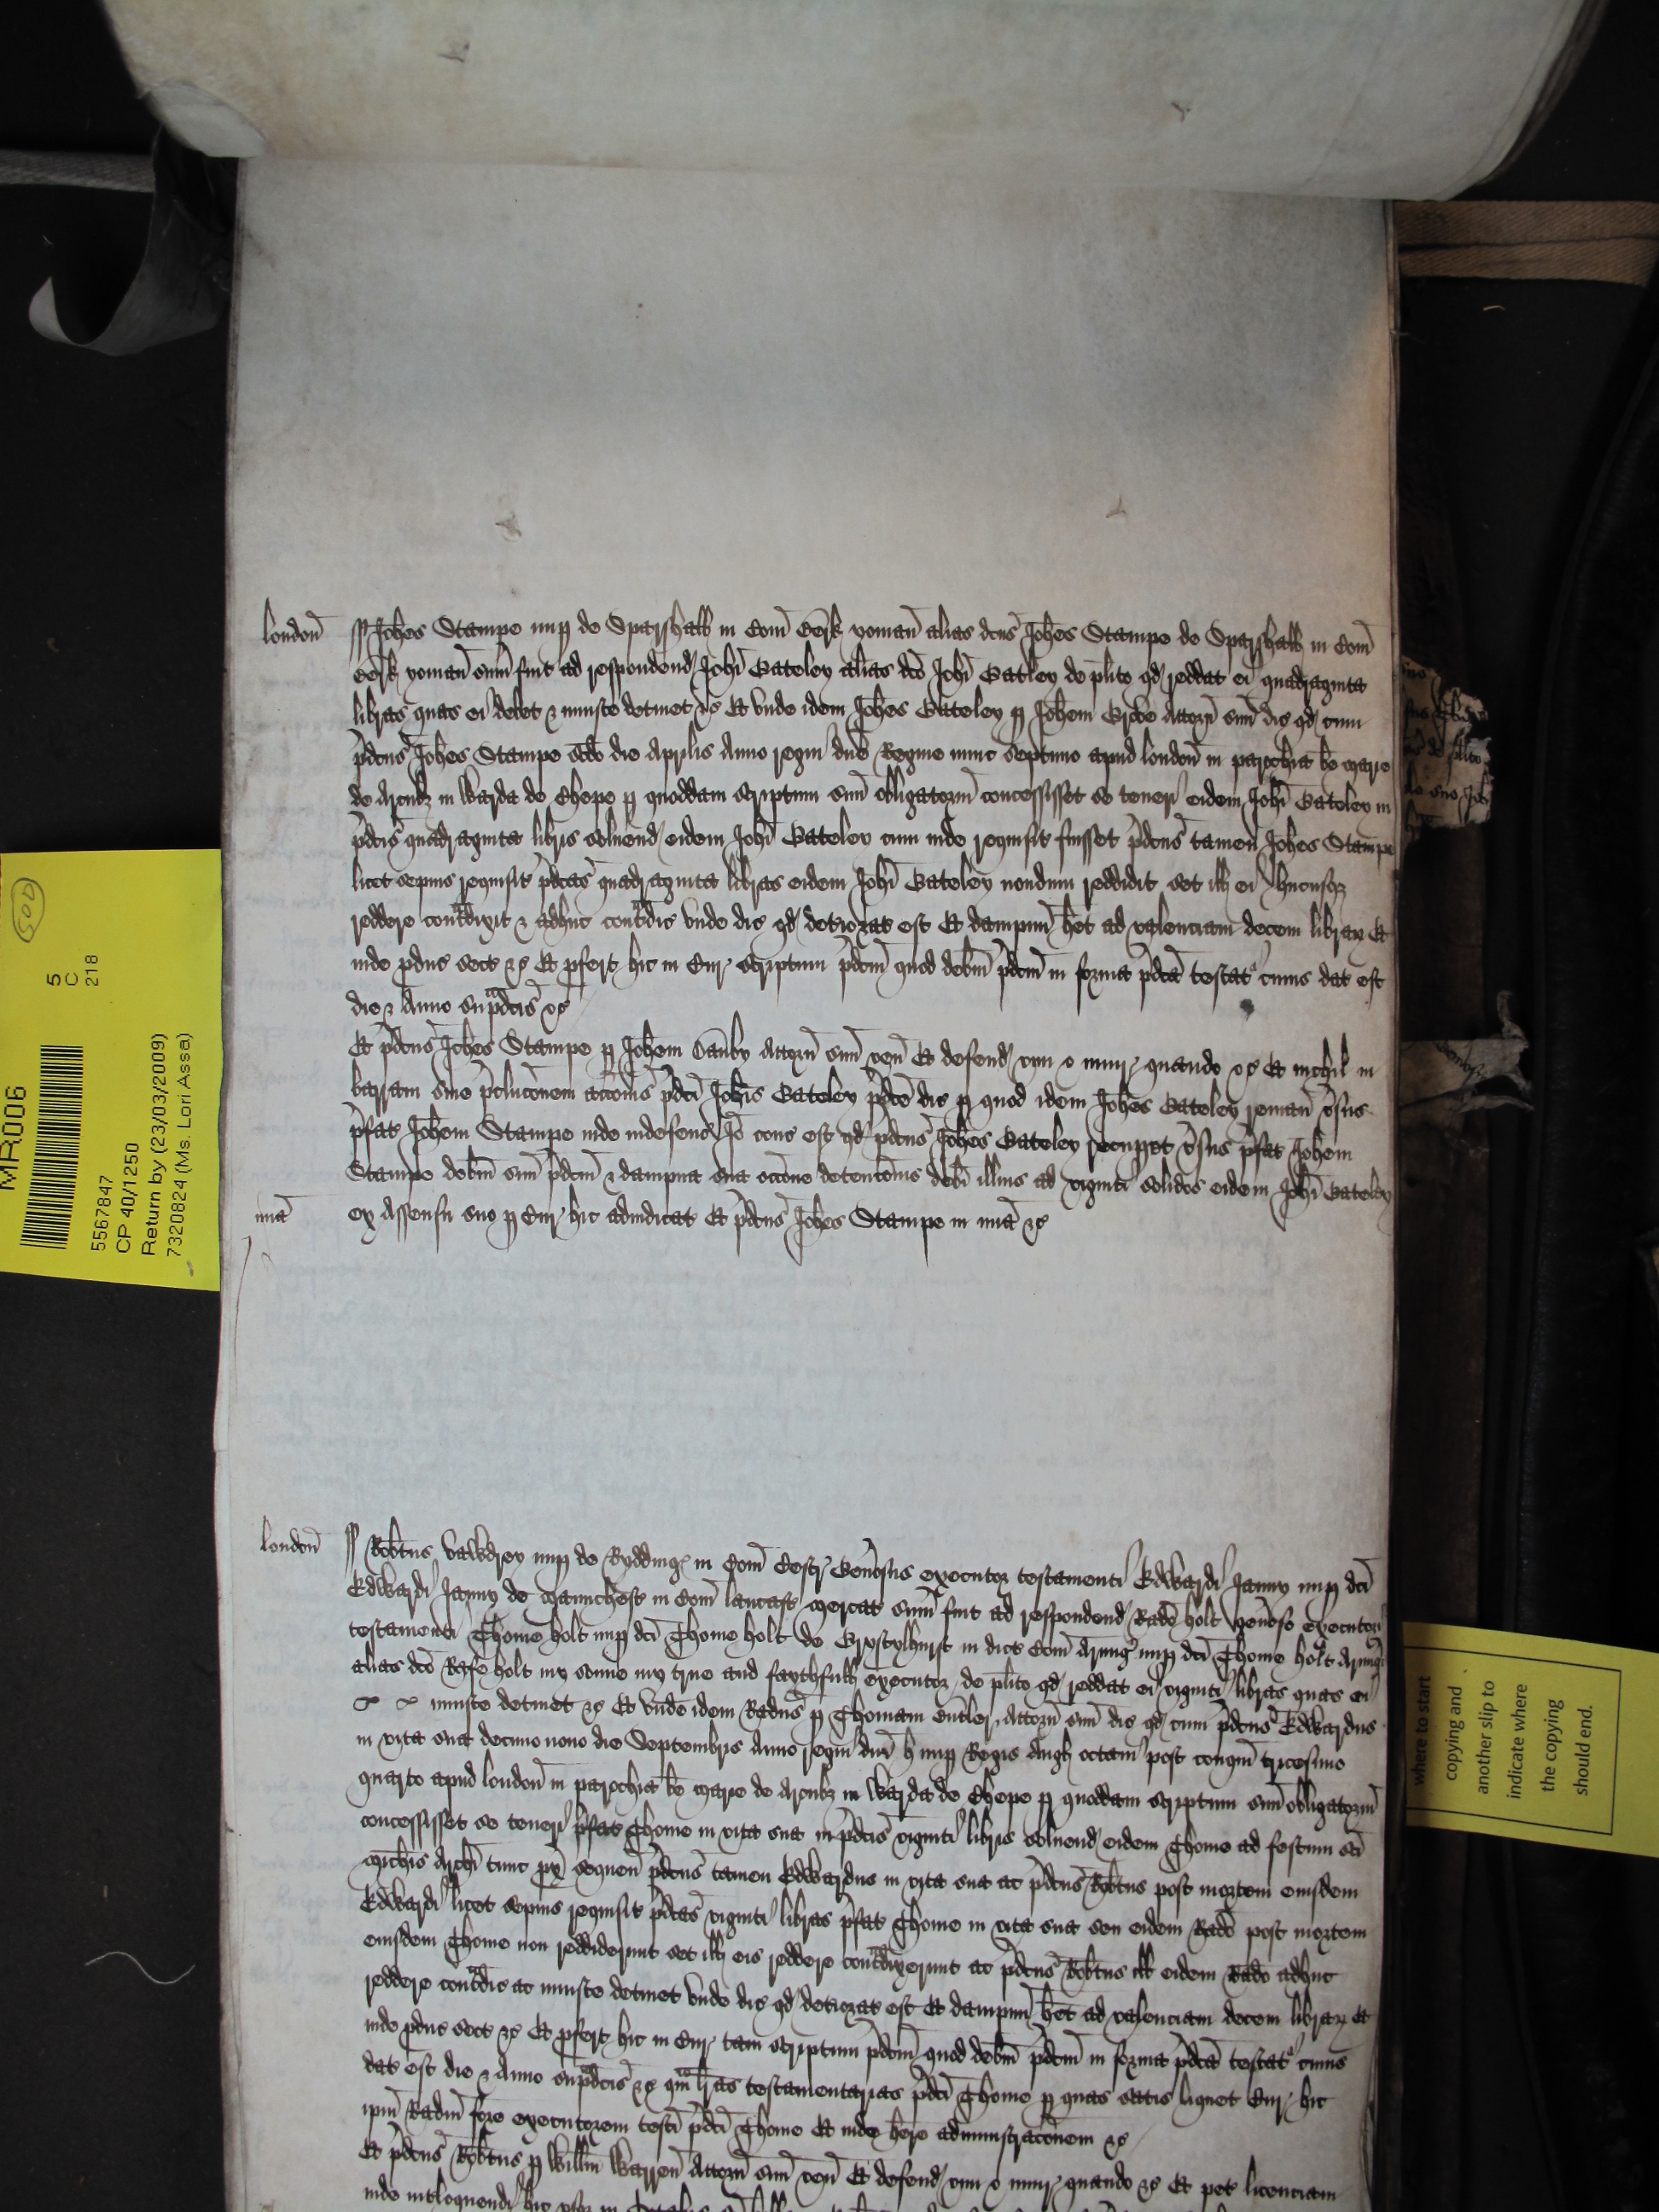 londoñ
Joħes Stampe nup de Sparsholt in Com̄ Berk yoman̄ alias dc̄us Joħes Stampe de Sparsholt in Com̄
Berk yoman̄ sum̄ fuit ad respondend Joħi Bateley alias dc̄o Joħi Batley de plito qd reddat ei quadraginta
libras quas ei debet & iniuste detinet &c Et unde idem Joħes Bateley p Joħem attorn̄ suū dic qd cum
p̄dc̄us Joħes Stampe die Aprilis Anno regni dn̄e Regine nunc septimo apud london̄ in parochia b̄e marie
de Arcubz in Warda de Chepe p quoddam scriptum suū obligatoriū concessisset se teneri eidem Joħi Bateley in
p̄dc̄is quadraginta libris solvend eidem Joħi Bateley cum inde requisit fuisset p̄dc̄us tamen Joħes Stampe
licet sepius requisit p̄dc̄as quadraginta libras eidem Joħi Bateley nondum reddidit set ill ei hucusqz
reddere cont̃dixit & adhuc cont̃dic unde dic qd deteriorat est Et dampnū h̄et ad valenciam decem librar Et
inde pduc sect &c Et pfert hic in Cur scriptum p̄dc̄m quod debm̄ p̄dc̄m in forma p̄dc̄a testat cuius dat est
die & Anno sup̃dc̄is &c
Et p̄dc̄us Joħes Stampe p Joħem attorn̄ suū ven̄ Et defend vim & iniur quando &c Et nichil in
barram sive p̄clucōnem acc̄onis p̄dc̄i Joħis Bateley p̄dc̄e dic p quod idem Joħes Bateley reman̄ ṽsus
p̄fat Joħem Stampe inde indefens Iō cons est qd p̄dc̄us Joħes Bateley recupet ṽsus p̄fat Joħem
Stampe debm̄ suū p̄dc̄m & dampna sua occōne detenc̄onis debi illius ad viginti solidos eidem Joħi Bateley
mīa
ex Assensu suo p Cur hic adiudicat Et p̄dc̄us Joħes Stampe in mīa &c
londoñ
Rob̄tus Valwdrey nup de Ryddings in Com̄ Cestr Gen̄osus executor testamenti Edwardi Janny nup dc̄i
Edwardi Janny de Mannchest in Com̄ lancastr mercat sum̄ fuit ad respondend Rado holt gen̄oso executori
testamenti Thome holt nup dc̄i Thome holt de Grystylhurst in dict Com̄ Armig nup dc̄i Thome holt Armigi
alias dc̄o Rafe holt my sonne my true and faythfull executor de plito qd reddat ei viginti libras quas ei
iniuste detinet &c Et unde idem Radus p Thomam Butler attorn̄ suū dic qd cum p̄dc̄us Edwardus
in vita sua decimo nono die Septembris Anno regni dn̄i h nup Regis Angl octavi post conqm̄ tricesimo
quarto apud london̄ in parochia b̄e marie de Arcubz in Warda de Chepe p quoddam scriptum suū obligatoriū
concessisset se teneri p̄fat Thome in vita sua in p̄dc̄is viginti libris solvend eidem Thome ad festum sc̄i
Mich̄is Arch̄i tunc px̄ sequen̄ p̄dc̄us tamen Edwardus in vita sua ac p̄dc̄us Rob̄tus post mortem eiusdem
Edwardi licet sepius requisit p̄dc̄as viginti libras p̄fat Thome in vita sua seu eidem Rado post mortem
eiusdem Thome non reddiderunt set ill eis reddere cont̃dixerunt ac p̄dc̄us Rob̄tus ill eidem Rado adhuc
reddere cont̃dic ac iniuste detinet unde dic qd deteriorat est Et dampnū h̄et ad valenciam decem librar Et
inde pduc sect &c Et pfert hic in Cur tam scriptum p̄dc̄m quod debm̄ p̄dc̄m in forma p̄dc̄a testat cuius
dat est die & Anno sup̃dc̄is &c qm̄ lr̄as testamentarias p̄dc̄i Thome p quas satis liquet Cur hic
ipm̄ Radm̄ fore executorem testi p̄dc̄i Thome Et inde h̄ere administrac̄onem &c
Et p̄dc̄us Rob̄tus p Willm̄ Warren̄ attorn̄ suū ven̄ Et defend vim & iniur quando &c Et pet licenciam
inde int̄loquendi hic
MR006
5
C
218
5567847
CP 40/1250
Return by (23/03/2009)
7320824 (Ms. Lori Assa)
where to start
copying and
another slip to
indicate where
the copying
should end.